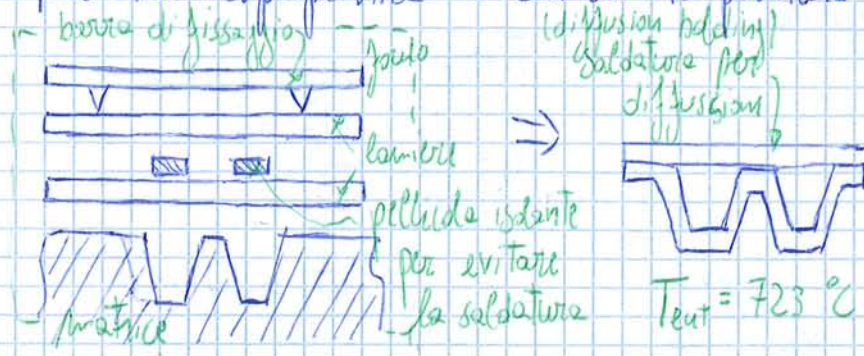 barra di fissaggio
lamiere
pellicola isolante
per evitare
la saldatura
matrice
(diffusion bolding)
saldatura per
diffusion
T eut = 723 °C